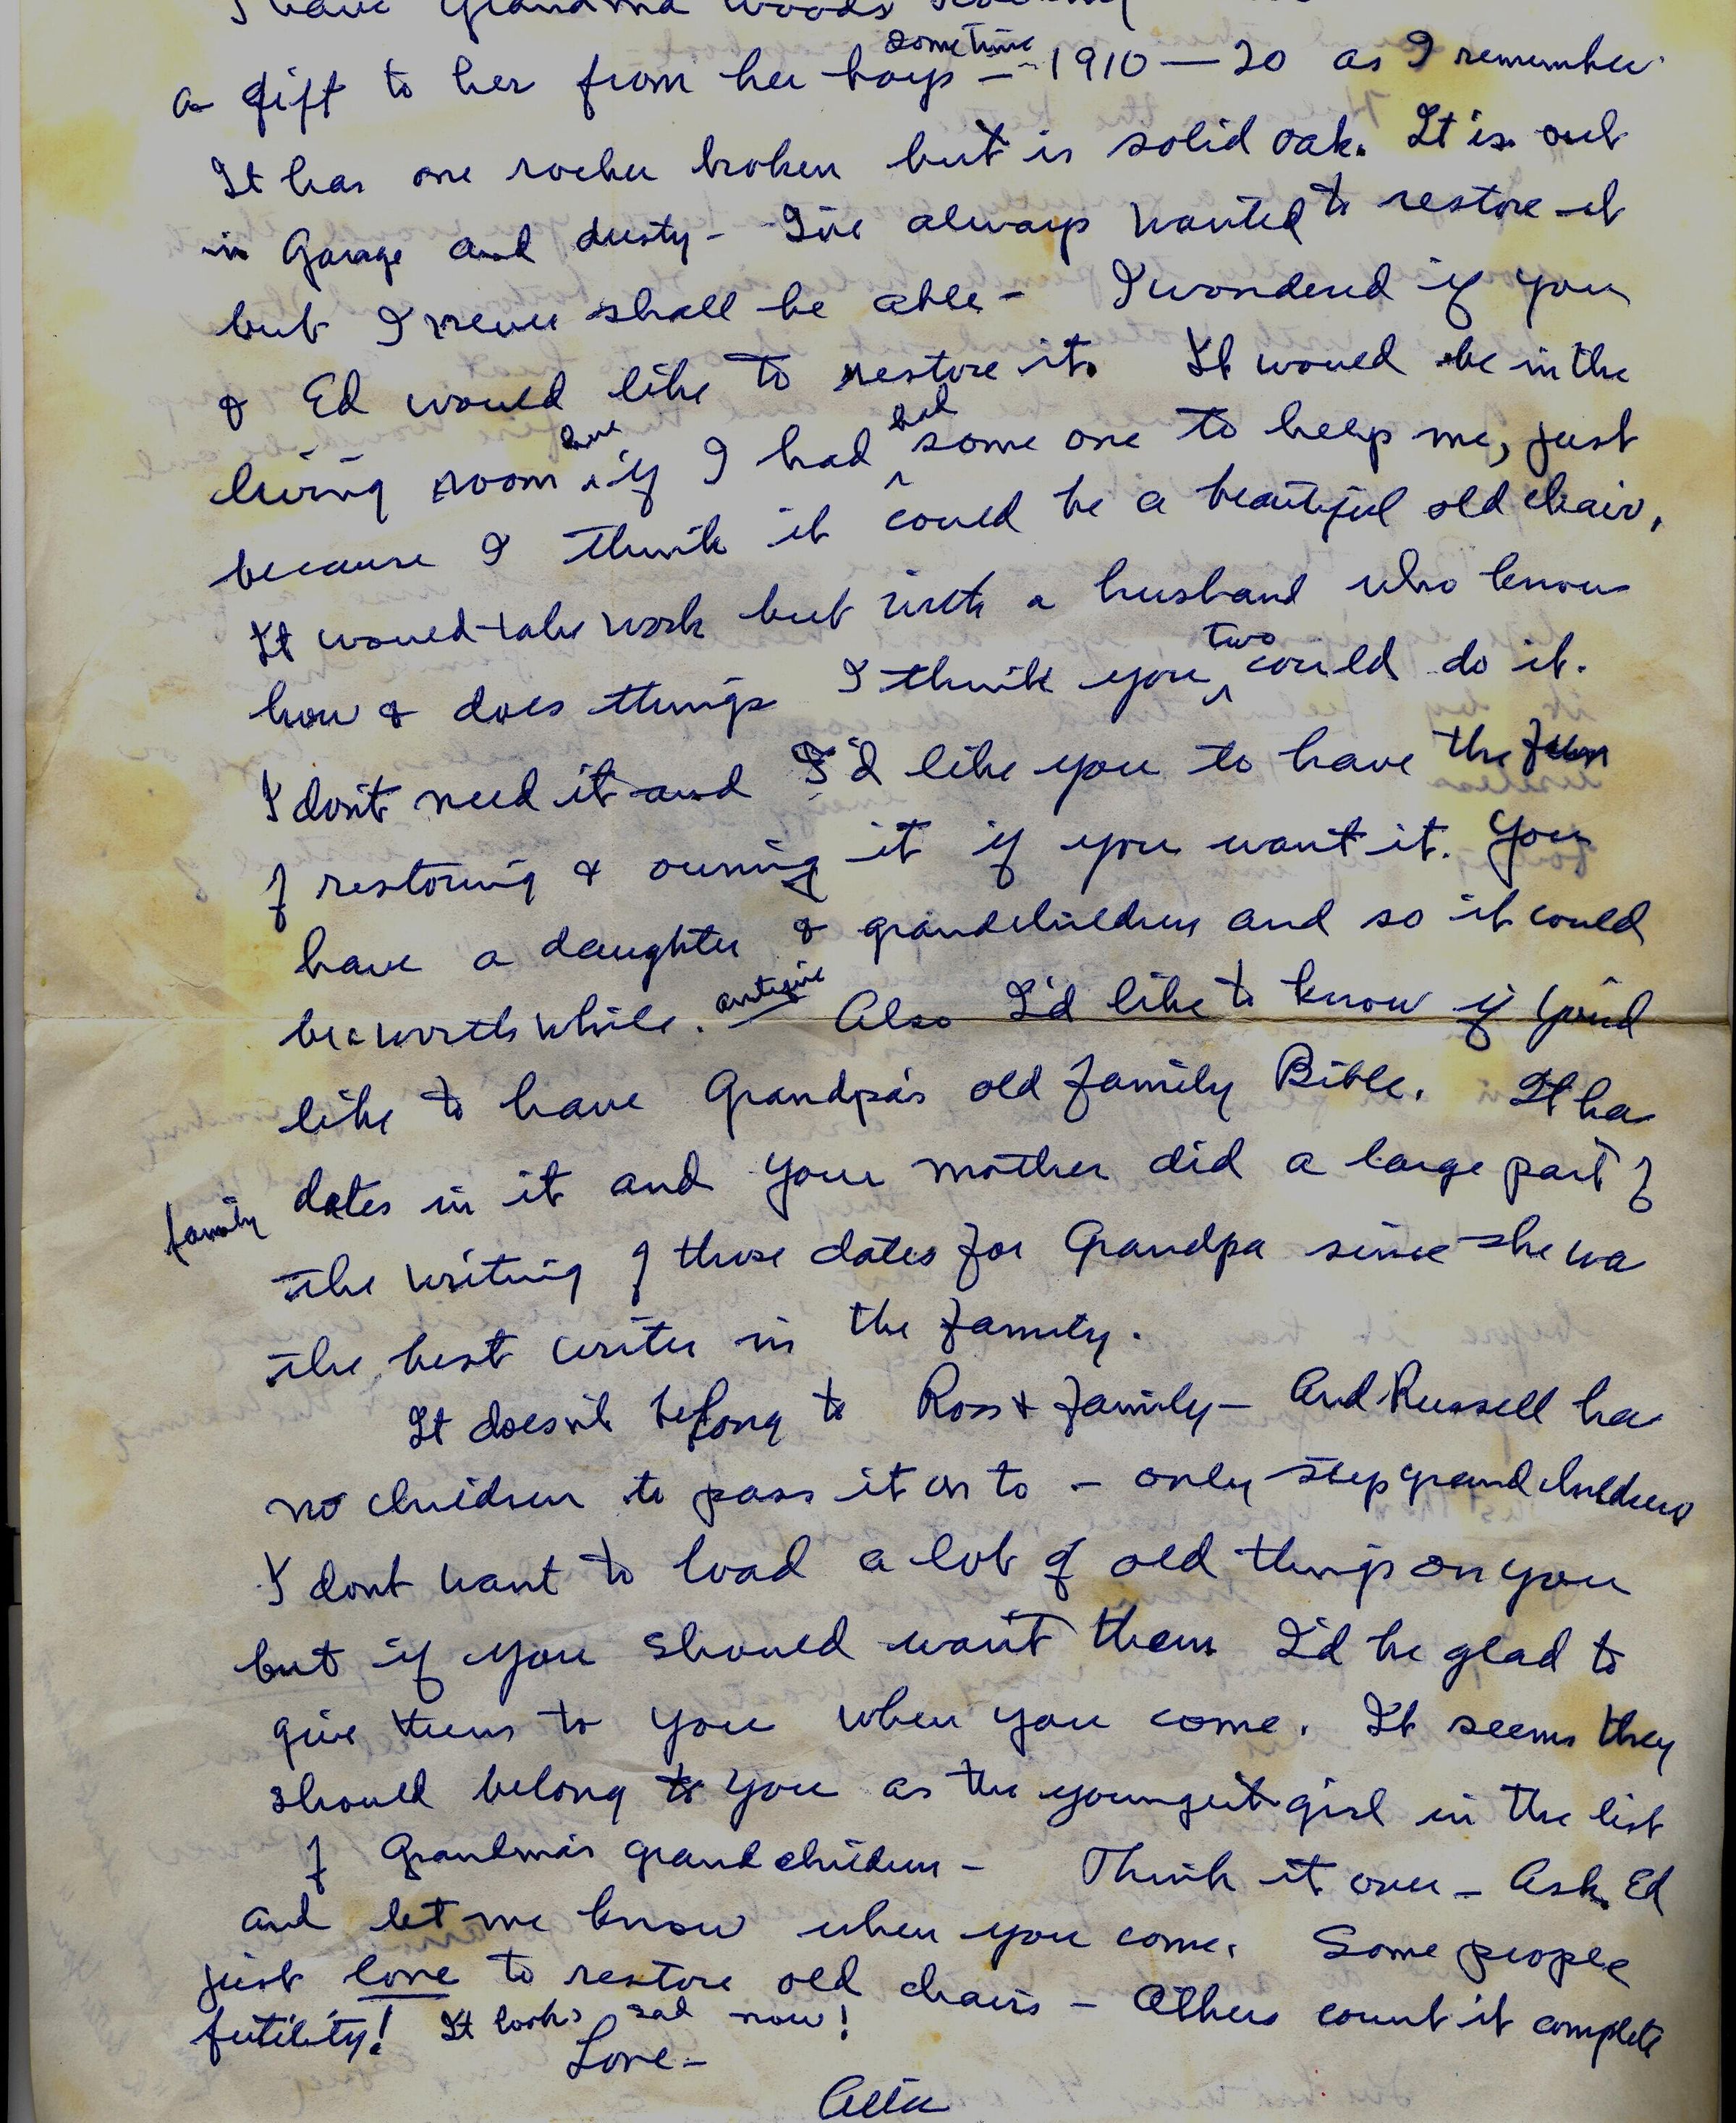 I have Grandma Woods
sometime
a gift to her from her boys — 1910 — 20 as I remember
It has one rocker broken but is solid oak. It is out
in Garage and dusty - I've always wanted to restore it
but I never shall be able - I wondered if you
& Ed would like to restore it. It would be in the
living room here if I had had some one to help me, just
because I think it could be a beautiful old chair,
It would take work but with a husband who knows
how & does things I think you two could do it.
I don't need it and I'd like you to have the fun
of restoring & owning it if you want it. You
have a daughter & grandchildren and so it could
be worth while. antique Also I'd like to know if you'd
like to have Grandpa's old family Bible. It ha
family dates in it and your mother did a large part of
the writing of those dates for Grandpa since she wa
the best writer in the family.
It doesn't belong to Ross & family - And Russell ha
no children to pass it on to - only step grandchildren
I dont want to load a lot of old things on you
but if you should want them I'd be glad to
give them to you when you come. It seems they
should belong to you as the youngest girl in the list
of Grandma's grandchildren - Think it over - Ask Ed
and let me know when you come. Some people
just love to restore old chairs - Others count it complete
futility! It looks sad now!
Love -